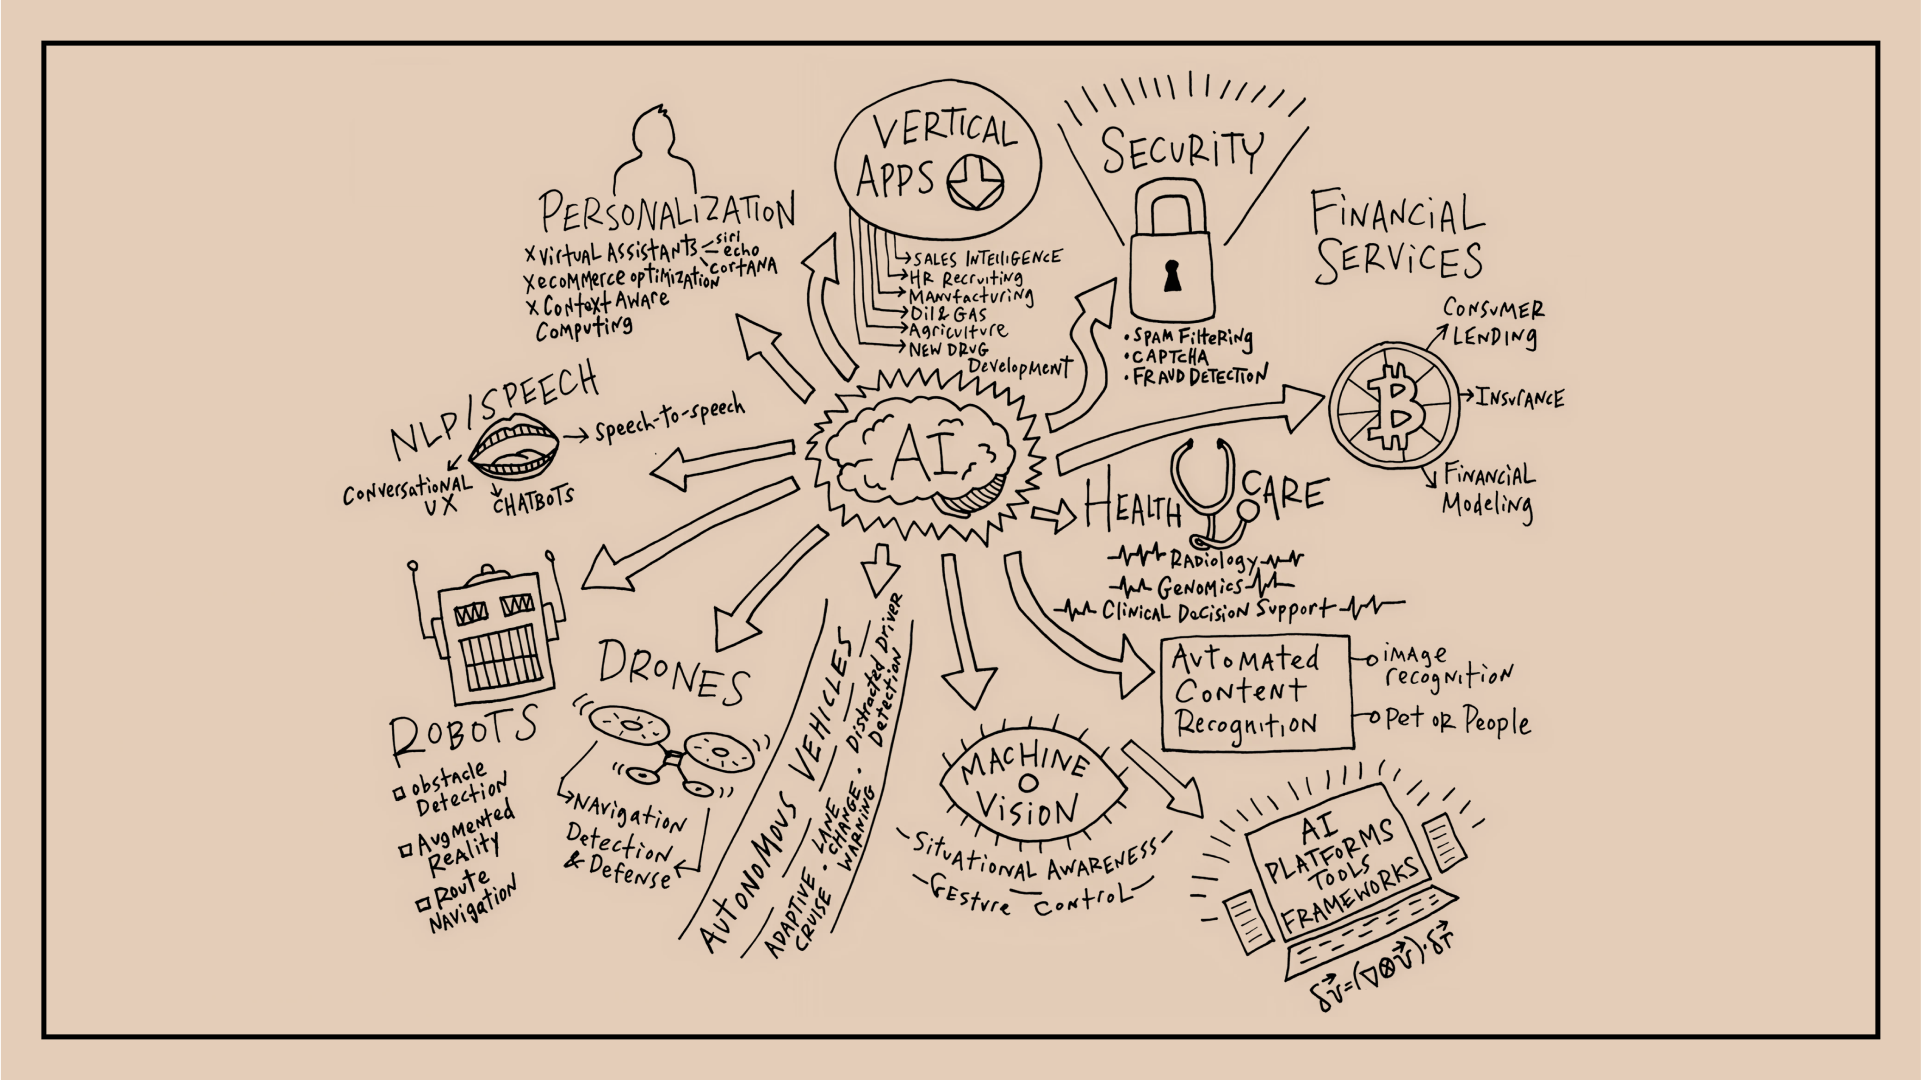 VERTICAL
APPS
SALES INTElliGENCE
HR Recruiting
MANufacturing
Oil & GAS
Agriculture
NEW DRUG
DevelopMENT
SECURiTY
• SPAM FiltERiNg
• CAPTCHA
• FRAUD DETECTION
PERSONALiZATiON
X VirtuAL AssistANts
siri
echo
CortANA
X ecoMMerce optiMizatioN
X CoNtext AwAre
CoMputiNg
FiNANCiAL
SERViCES
CoNsuMER
LENDiNg
INSurANCE
FiNANciAL
ModeliNg
NLP/SPEECH
Speech-to-speech
CoNversatioNAL
UX
CHATBOTS
AI
HEALTH CARE
RADiology
GeNoMics
CliNicAL DecisioN Support
ROBOTS
obstAcle
DetectioN
AugMeNted
ReAlity
Route
NAvigAtioN
DRONES
NAvigatioN
DetectioN
& DefeNse
AUTONOMOUS VEHICLES
ADAPTIVE
CRUISE
• LANE
CHANGE
WARNiNG
• Distracted Driver
Detection
AutoMAted
CoNteNt
RecogNitioN
iMAge
recogNitioN
Pet OR People
MACHiNE
ViSiON
SituAtioNAL AwAReNESS
GEsture CoNtroL
AI
PLATFORMS
TOOLS
FRAMEWORKS
δv⃗=(∇⊗v⃗)·δr⃗